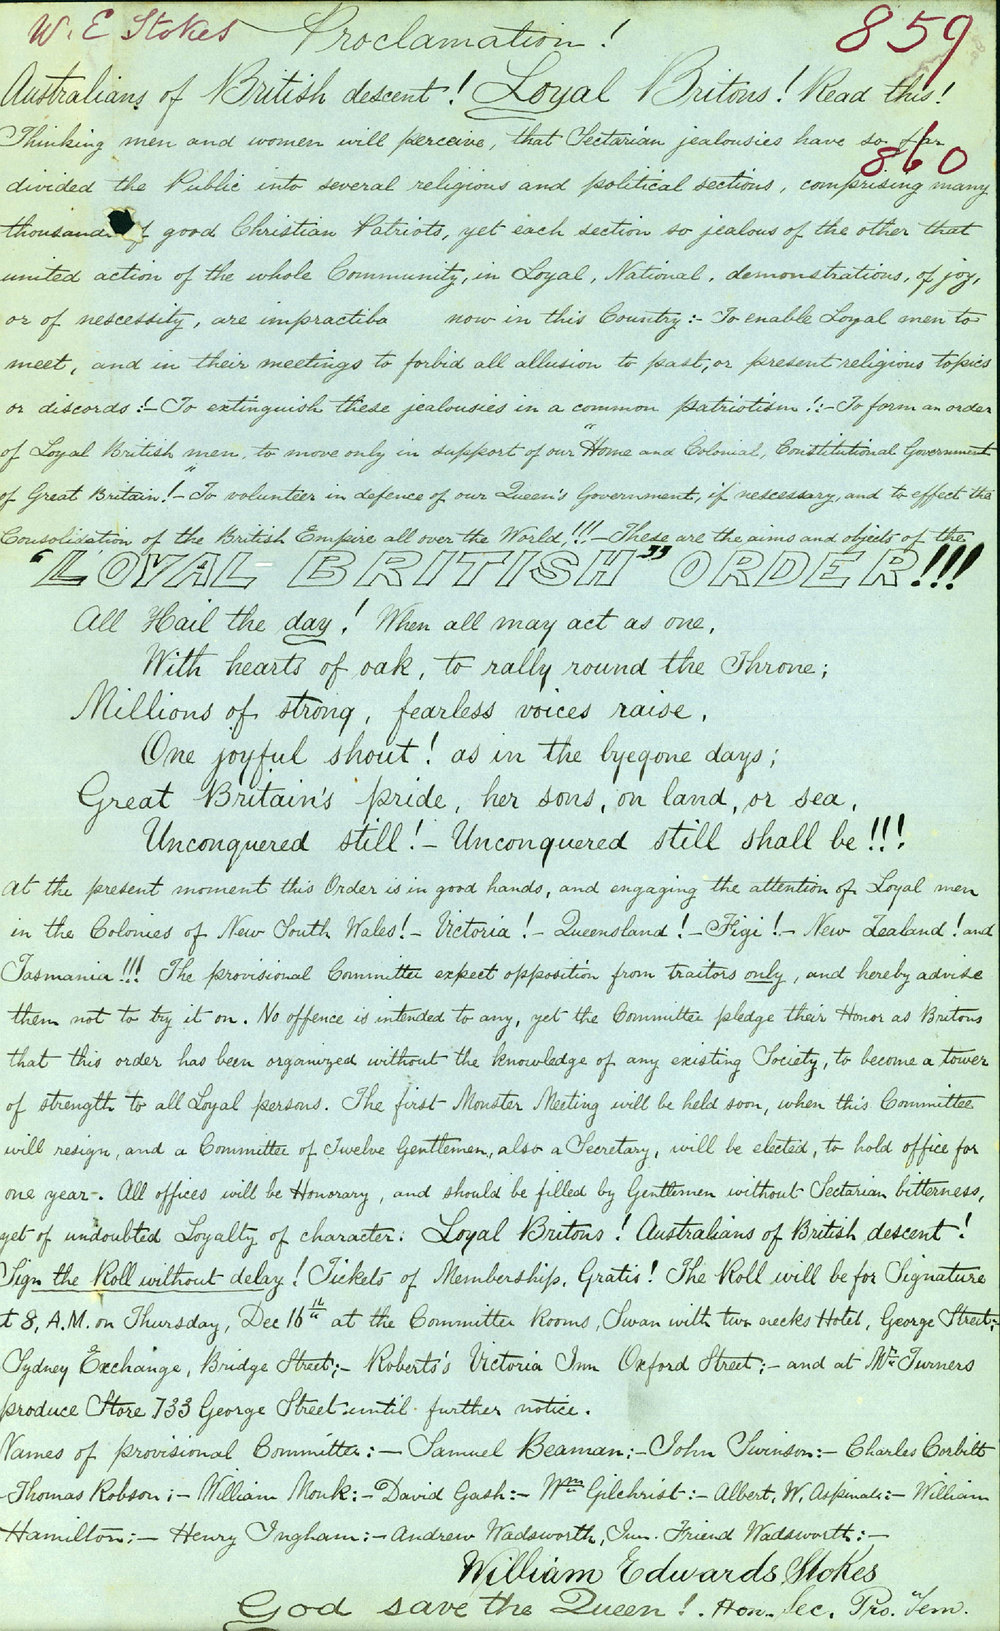 W. E Stokes Proclamation! 859
Australians of British descent! Loyal Britons! Read this!
Thinking men and women will perceive, that Sectarian jealousies have so far
860
divided the Public into several religious and political sections, comprising many
thousands of good Christian Patriots, yet each section so jealous of the other that
united action of the whole Community, in Loyal, National, demonstrations, of joy,
or of nescessity, are impractiba now in this Country:- To enable Loyal men to
meet, and in their meetings to forbid all allusion to past, or present religious topics
or discords!- To extinguish these jealousies in a common patriotism!:- To form an order
of Loyal British men, to move only in support of our "Home and Colonial, Constitutional Government
of Great Britain!"- To volunteer in defence of our Queen's Government, if nescessary, and to effect the
Consolidation of the British Empire all over the World!!!- These are the aims and objects of the
"LOYAL BRITISH" ORDER!!!
All Hail the day! When all may act as one,
With hearts of oak, to rally round the Throne;
Millions of strong, fearless voices raise,
One joyful shout! as in the byegone days;
Great Britain's pride, her sons, on land, or sea,
Unconquered still!- Unconquered still shall be!!!
At the present moment this Order is in good hands, and engaging the attention of Loyal men
in the Colonies of New South Wales!- Victoria!- Queensland!- Figi!- New Zealand! and
Tasmania!!! The provisional Committee expect opposition from traitors only, and hereby advise
them not to try it on. No offence is intended to any, yet the Committee pledge their Honor as Britons
that this order has been organized without the knowledge of any existing Society, to become a tower
of strength to all Loyal persons. The first Monster Meeting will be held soon, when this Committee
will resign, and a Committee of Twelve Gentlemen, also a Secretary, will be elected, to hold office for
one year-. All offices will be Honorary, and should be filled by Gentlemen without Sectarian bitterness,
yet of undoubted Loyalty of character. Loyal Britons! Australians of British descent!
Sign the Roll without delay! Tickets of Membership, Gratis! The Roll will be for Signature
at 8, A.M. on Thursday, Dec 16th at the Committee Rooms, Swan with two necks Hotel, George Street;-
Sydney Exchange, Bridge Street;- Roberts's Victoria Inn Oxford Street;- and at Mr Turners
produce Store 733 George Street until further notice.
Names of provisional Committee:- Samuel Beaman;- John Swinson:- Charles Corbitt
Thomas Robson;- William Monk:- David Gash:- Wm Gilchrist:- Albert, W, Aspinall:- William
Hamilton;- Henry Ingham:- Andrew Wadsworth, Jun. Friend Wadsworth:-
William Edwards Stokes
God save the Queen! Hon. Sec. Pro. Tem.